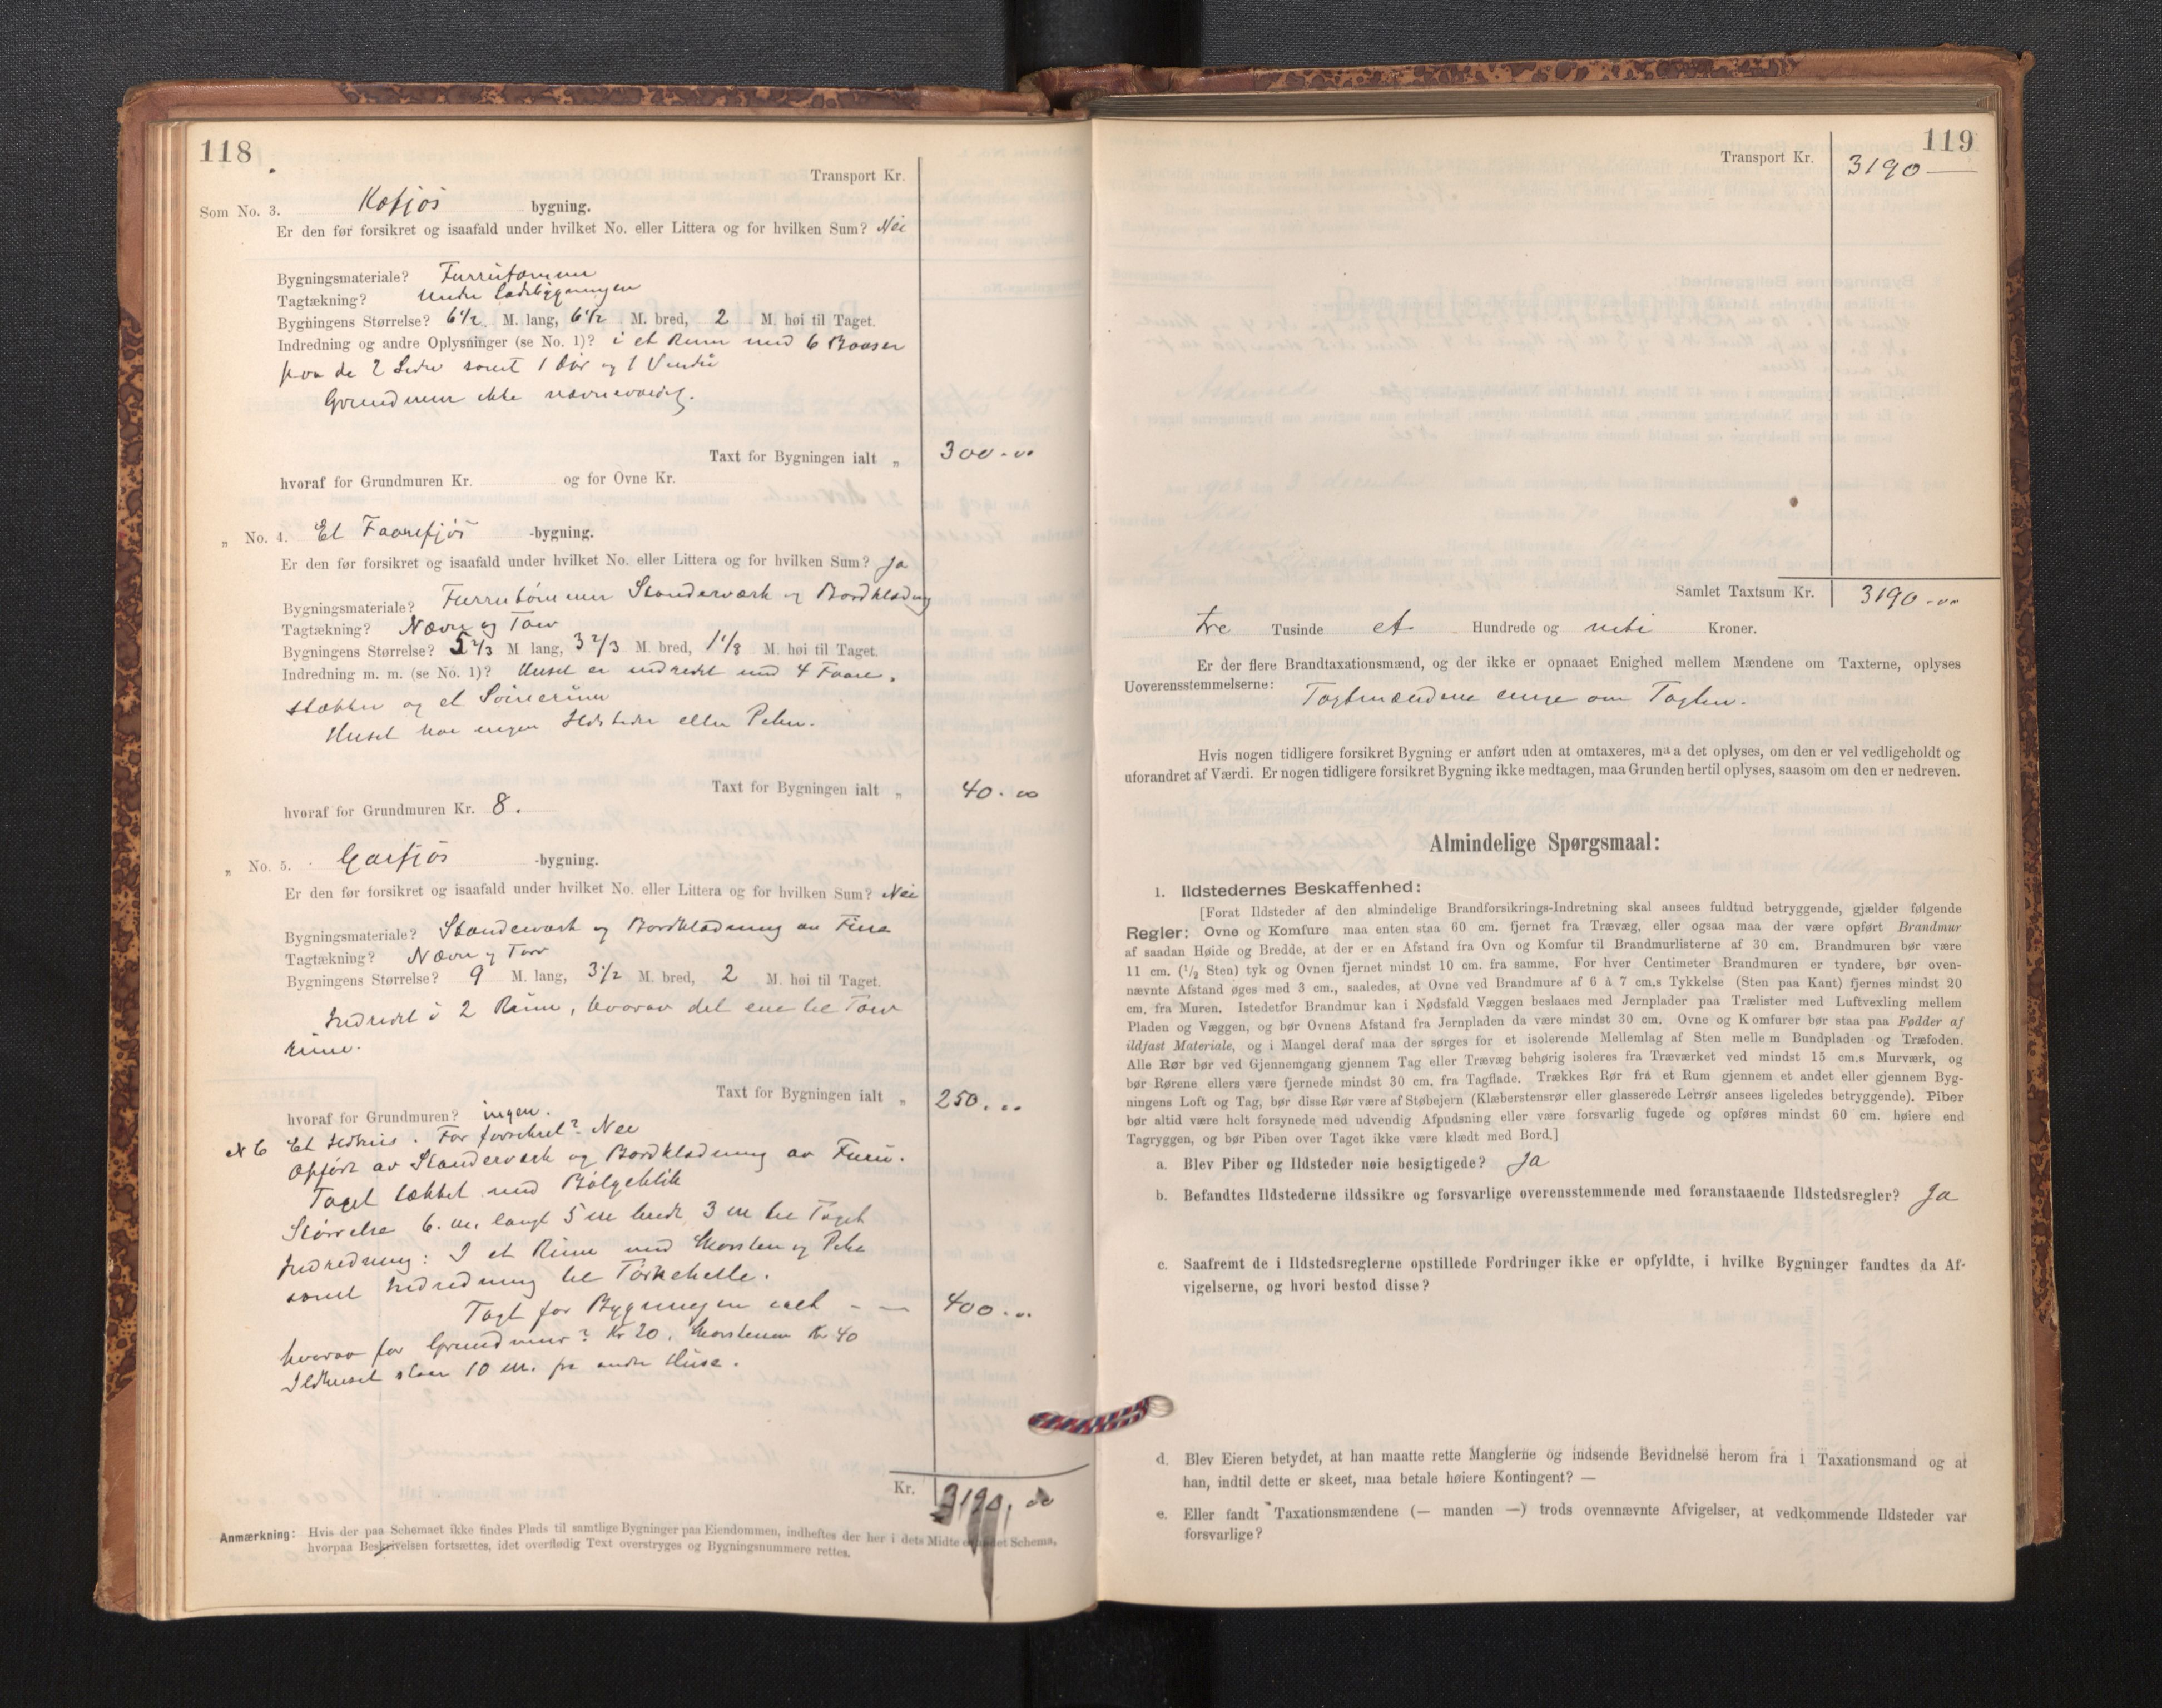 118
Transport Kr.
Som No. 3. Kofjös bygning.
Er den før forsikret og isaafald under hvilket No. eller Littera og for hvilken Sum? Nei
Bygningsmateriale? Furrutømmer
Tagtækning? under ladebygningen
Bygningens Størrelse? 6 1/2 M. lang, 6 1/2 M. bred, 2 M. høi til Taget.
Indredning og andre Oplysninger (se No. 1)? i et Rum med 6 Baaser
paa de 2 Sider samt 1 Dør og 1 Vindu
Grundmur ikke nævneværdig.
Taxt for Bygningen ialt „ 300.00
hvoraf for Grundmuren Kr. og for Ovne Kr.
„ No. 4. Et Faarefjös -bygning.
Er den før forsikret og isaafald under hvilket No. eller Littera og for hvilken Sum? Ja
Bygningsmateriale? Furrutömmer Standerværk og Bordklædning
Tagtækning? Næver og Torv
Bygningens Størrelse? 5 2/3 M. lang, 3 2/3 M. bred, 1 1/8 M. høi til Taget.
Indredning m. m. (se No. 1)? Huset er indredet med 4 Faare,
stækker og et Rum
Huset har ingen Ildsteder eller Piber.
Taxt for Bygningen ialt „ 40.00
hvoraf for Grundmuren Kr. 8.
„ No. 5. -bygning.
Er den før forsikret og isaafald under hvilket No. eller Littera og for hvilken Sum? Nei
Bygningsmateriale? Standerværk og Bordklædning av Furu
Tagtækning? Næver og Torv
Bygningens Størrelse? 9 M. lang, 3 1/2 M. bred, 2 M. høi til Taget.
Indredet i 2 Rum, hvorav det ene til Torv
rum.
Taxt for Bygningen ialt „ 250.00
hvoraf for Grundmuren? ingen.
N 6 Et Ildhus. Før forsikret? Nei
Opført av Standerværk og Bordklædning av Furu.
Taget tækket med Bølgeblik
Størrelse 6 m. langt 5 m bredt 3 m til Taget
Indredning: I et Rum med Skorsten og Pibe
samt Indredning til Tørkehelle.
Taxt for Bygningen ialt - — 400.00
hvorav for Grundmur? Kr 20. Skorstenen Kr 40
Ildhuset staar 10 m. fra andre Huse.
Kr. 3190,00
Anmærkning: Hvis der paa Schemaet ikke findes Plads til samtlige Bygninger paa Eiendommen, indheftes der her i dets Midte et andet Schema,
hvorpaa Beskrivelsen fortsættes, idet overflødig Text overstryges og Bygningsnummere rettes.
119
Transport Kr. 3190 —
Samlet Taxtsum Kr. 3190.00
tre Tusinde et Hundrede og niti Kroner.
Er der flere Brandtaxationsmænd, og der ikke er opnaaet Enighed mellem Mændene om Taxterne, oplyses
Uoverensstemmelserne: Taxtmændene enige om Taxten.
Hvis nogen tidligere forsikret Bygning er anført uden at omtaxeres, maa det oplyses, om den er vel vedligeholdt og
uforandret af Værdi. Er nogen tidligere forsikret Bygning ikke medtagen, maa Grunden hertil oplyses, saasom om den er nedreven.
Almindelige Spørgsmaal:
1. Ildstedernes Beskaffenhed:
[Forat Ildsteder af den almindelige Brandforsikrings-Indretning skal ansees fuldtud betryggende, gjælder følgende
Regler: Ovne og Komfure maa enten staa 60 cm. fjernet fra Trævæg, eller ogsaa maa der være opført Brandmur
af saadan Høide og Bredde, at der er en Afstand fra Ovn og Komfur til Brandmurlisterne af 30 cm. Brandmuren bør være
11 cm. (1/2 Sten) tyk og Ovnen fjernet mindst 10 cm. fra samme. For hver Centimeter Brandmuren er tyndere, bør oven-
nævnte Afstand øges med 3 cm., saaledes, at Ovne ved Brandmure af 6 à 7 cm.s Tykkelse (Sten paa Kant) fjernes mindst 20
cm. fra Muren. Istedetfor Brandmur kan i Nødsfald Væggen beslaaes med Jernplader paa Trælister med Luftvexling mellem
Pladen og Væggen, og bør Ovnens Afstand fra Jernpladen da være mindst 30 cm. Ovne og Komfurer bør staa paa Fødder af
ildfast Materiale, og i Mangel deraf maa der sørges for et isolerende Mellemlag af Sten mellem Bundpladen og Træfoden.
Alle Rør bør ved Gjennemgang gjennem Tag eller Trævæg behørig isoleres fra Træværket ved mindst 15 cm.s Murværk, og
bør Rørene ellers være fjernede mindst 30 cm. fra Tagflade. Trækkes Rør fra et Rum gjennem et andet eller gjennem Byg-
ningens Loft og Tag, bør disse Rør være af Støbejern (Klæberstensrør eller glasserede Lerrør ansees ligeledes betryggende). Piber
bør altid være holt forsynede med udvendig Afpudsning eller være forsvarlig fugede og opføres mindst 60 cm. høiere end
Tagryggen, og bør Piben over Taget ikke være klædt med Bord.]
a. Blev Piber og Ildsteder nøie besigtigede? Ja
b. Befandtes Ildstederne ildssikre og forsvarlige overensstemmende med foranstaaende Ildstedsregler? Ja
c. Saafremt de i Ildstedsreglerne opstillede Fordringer ikke er opfyldte, i hvilke Bygninger fandtes da Af-
vigelserne, og hvori bestod disse?
d. Blev Eieren betydet, at han maatte rette Manglerne og indsende Bevidnelse herom fra 1 Taxationsmand og at
han, indtil dette er skeet, maa betale høiere Kontingent? —
e. Eller fandt Taxationsmændene (— manden —) trods ovennævnte Afvigelser, at vedkommende Ildsteder var
forsvarlige?